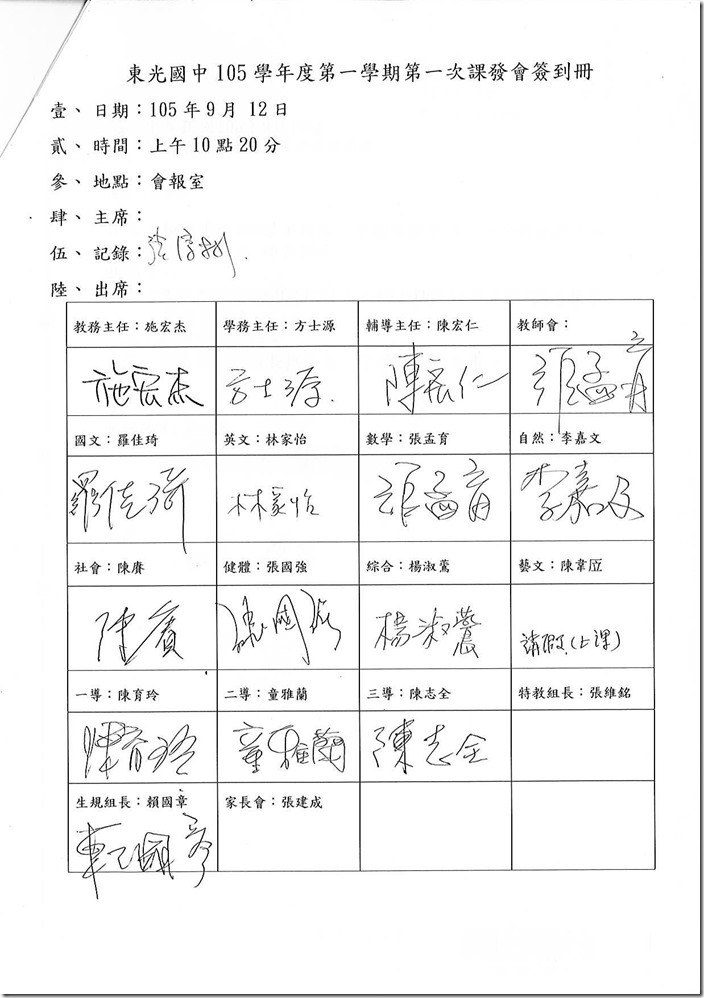 東光國中 105 學年度第一學期第一次課發會簽到冊
壹、日期：105 年 9 月 12 日
貳、時間：上午 10 點 20 分
參、地點：會報室
肆、主席：
伍、記錄：
陸、出席：
教務主任：施宏杰 學務主任：方士源 輔導主任：陳宏仁 教師會：
施宏杰 方士源 陳宏仁 張孟育
國文：羅佳琦 英文：林家怡 數學：張孟育 自然：李嘉文
羅佳琦 林家怡 張孟育 李嘉文
社會：陳賡 健體：張國強 綜合：楊淑鶯 藝文：陳韋
張國強 楊淑 請假(上課)
一導：陳育玲 二導：童雅蘭 三導：陳志全 特教組長：張維銘
陳育玲 童雅蘭 陳志全
生規組長：賴國章 家長會：張建成
賴國章